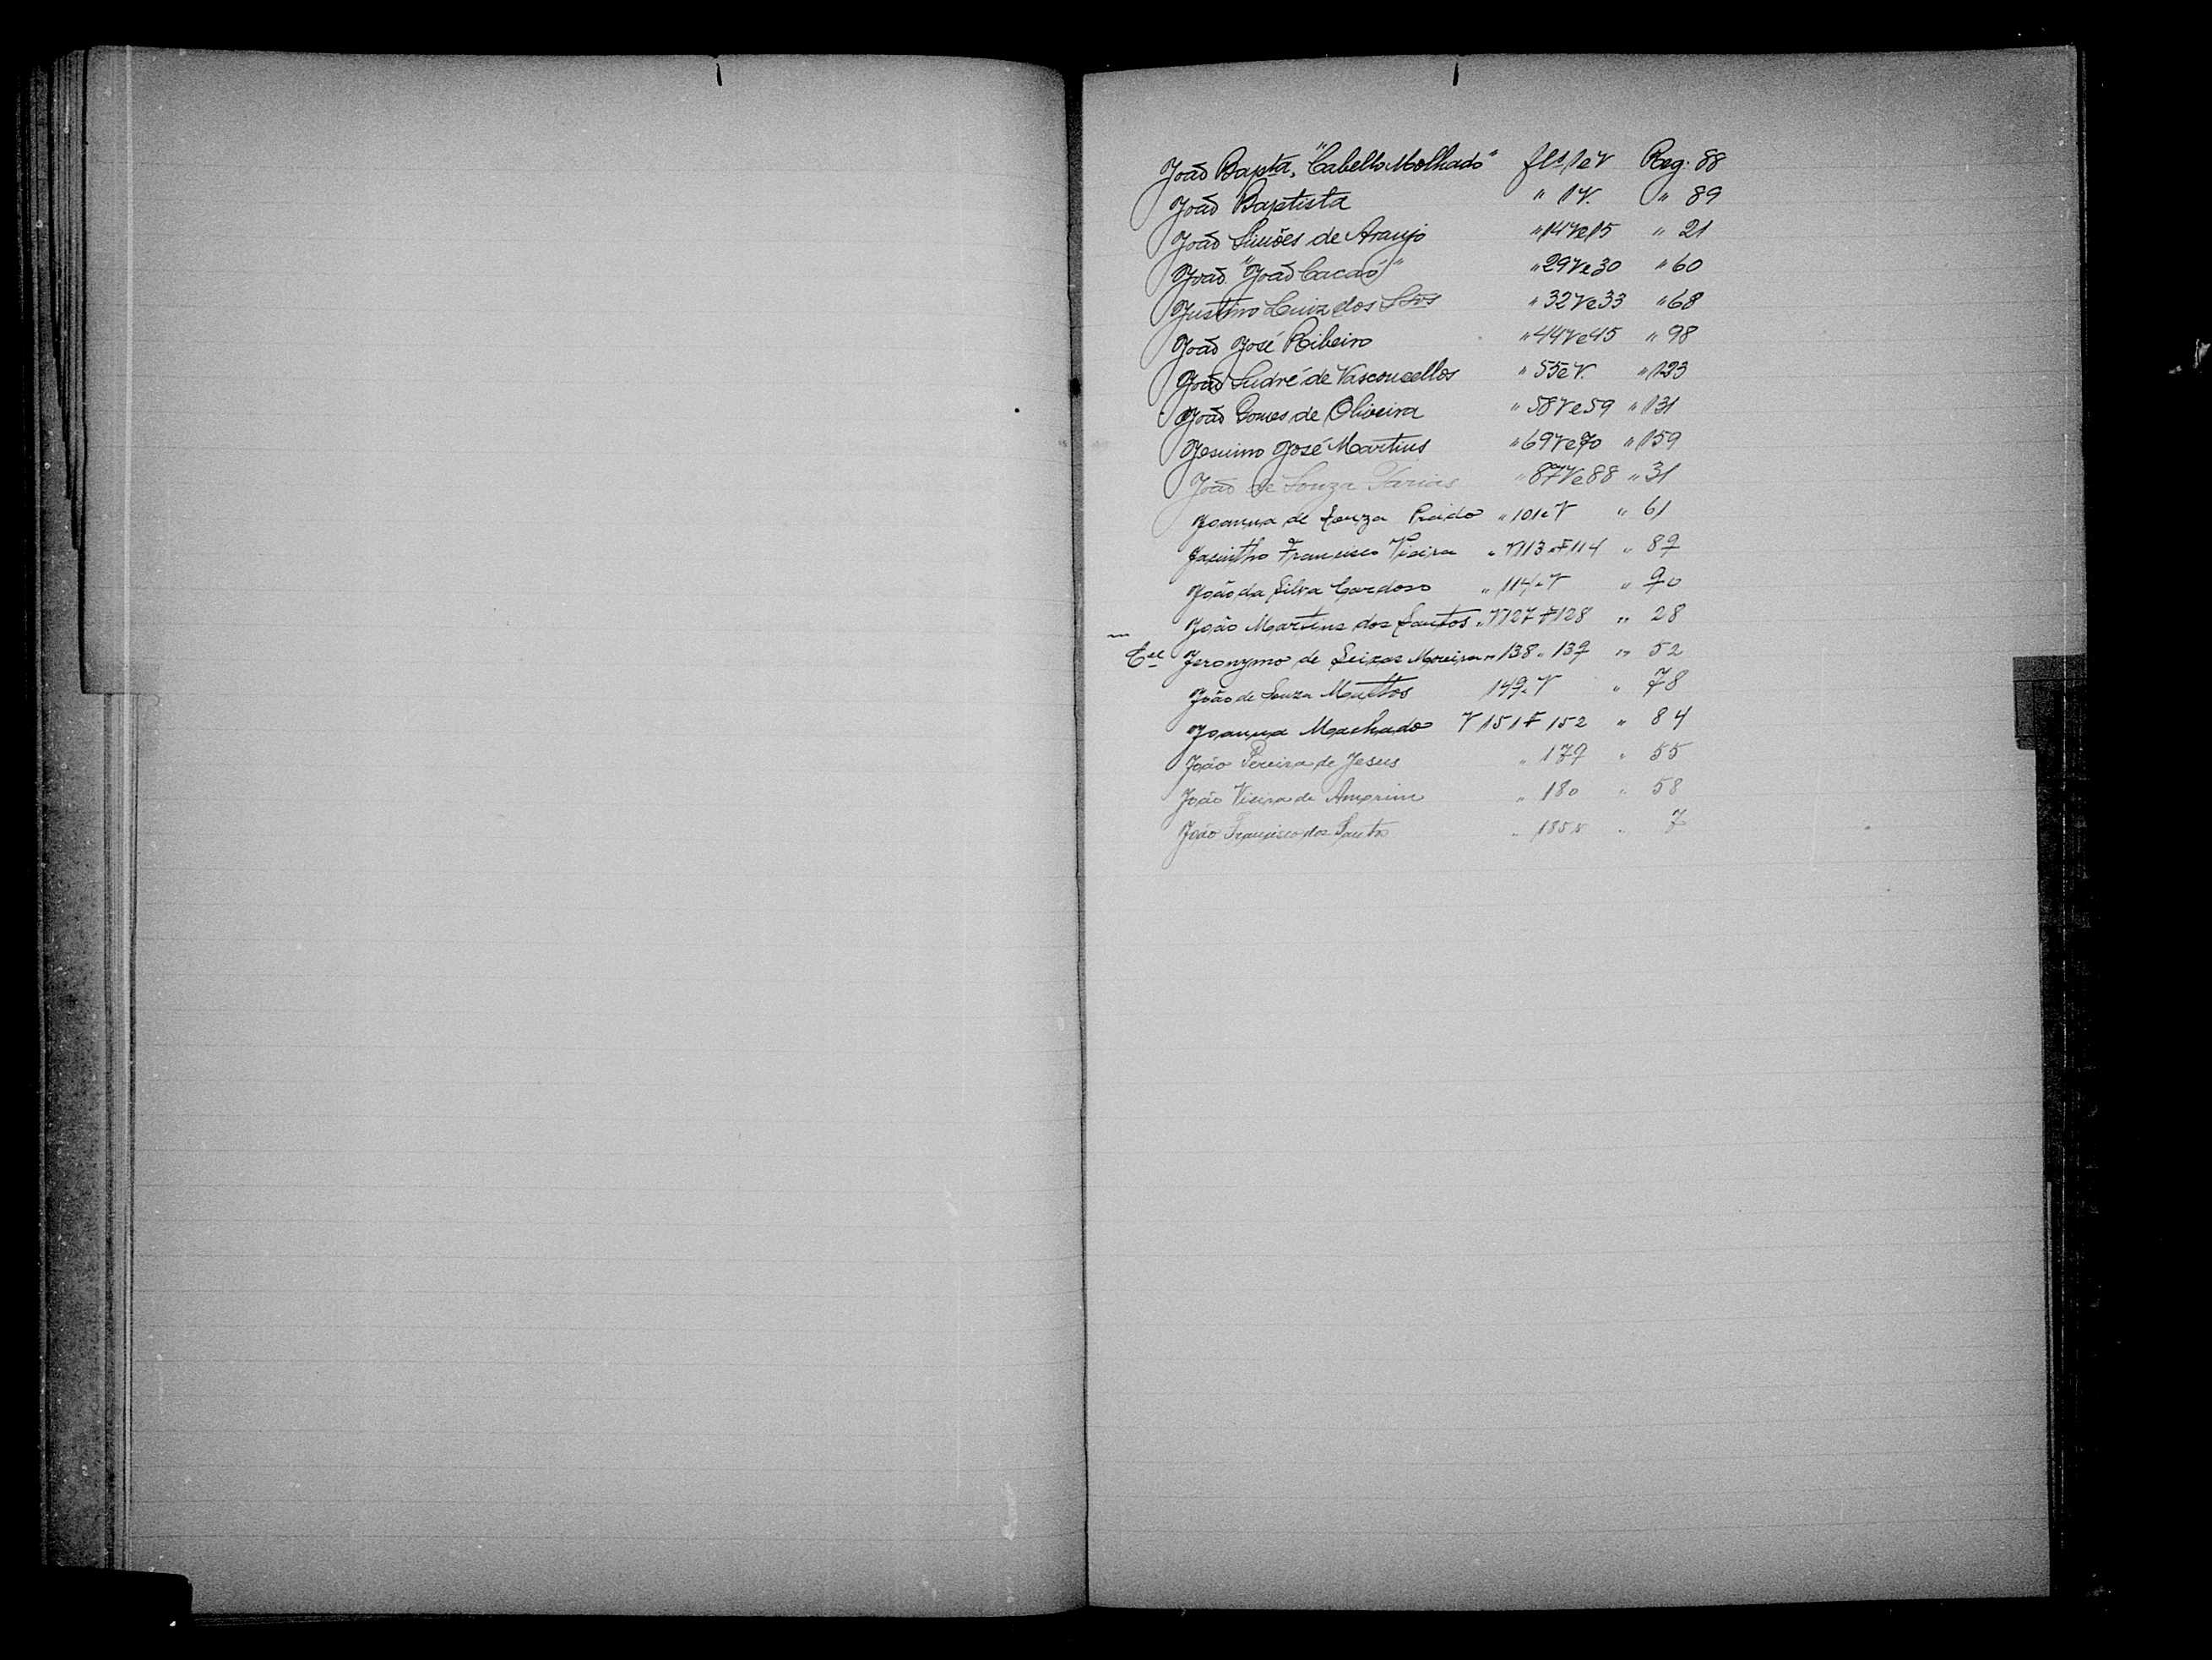 João Bapta, "Cabello Molhado" fls 1 e V Reg. 88
João Baptista " 1 V. " 89
João Simões de Araujo " 14 V e 15 " 21
João "João Cacáo" " 29 V e 30 " 60
Justino Luiz dos Stos " 32 V e 33 " 68
João José Ribeiro " 44 V e 45 " 98
João Sudré de Vasconcellos " 55 e V. " 123
João Gomes de Oliveira " 58 V e 59 " 131
Jesuino José Martins " 69 V e 70 " 159
João de Souza Farias " 87 V e 88 " 31
Joanna de Souza Prado " 101 e V " 61
Jacintho Francisco Vieira " V 113 e F 114 " 89
João da Silva Cardoso " 114 e V " 90
João Martins dos Santos " V 127 F 128 " 28
Cel Jeronymo de Seixas Moreira " 138 " 139 " 52
João de Souza Mattos 149 e V " 78
Joanna Machado V 151 F 152 " 84
João Pereira de Jesus " 179 " 55
João Vieira de Amorim " 180 " 58
João Francisco dos Santos " 185 v " 7